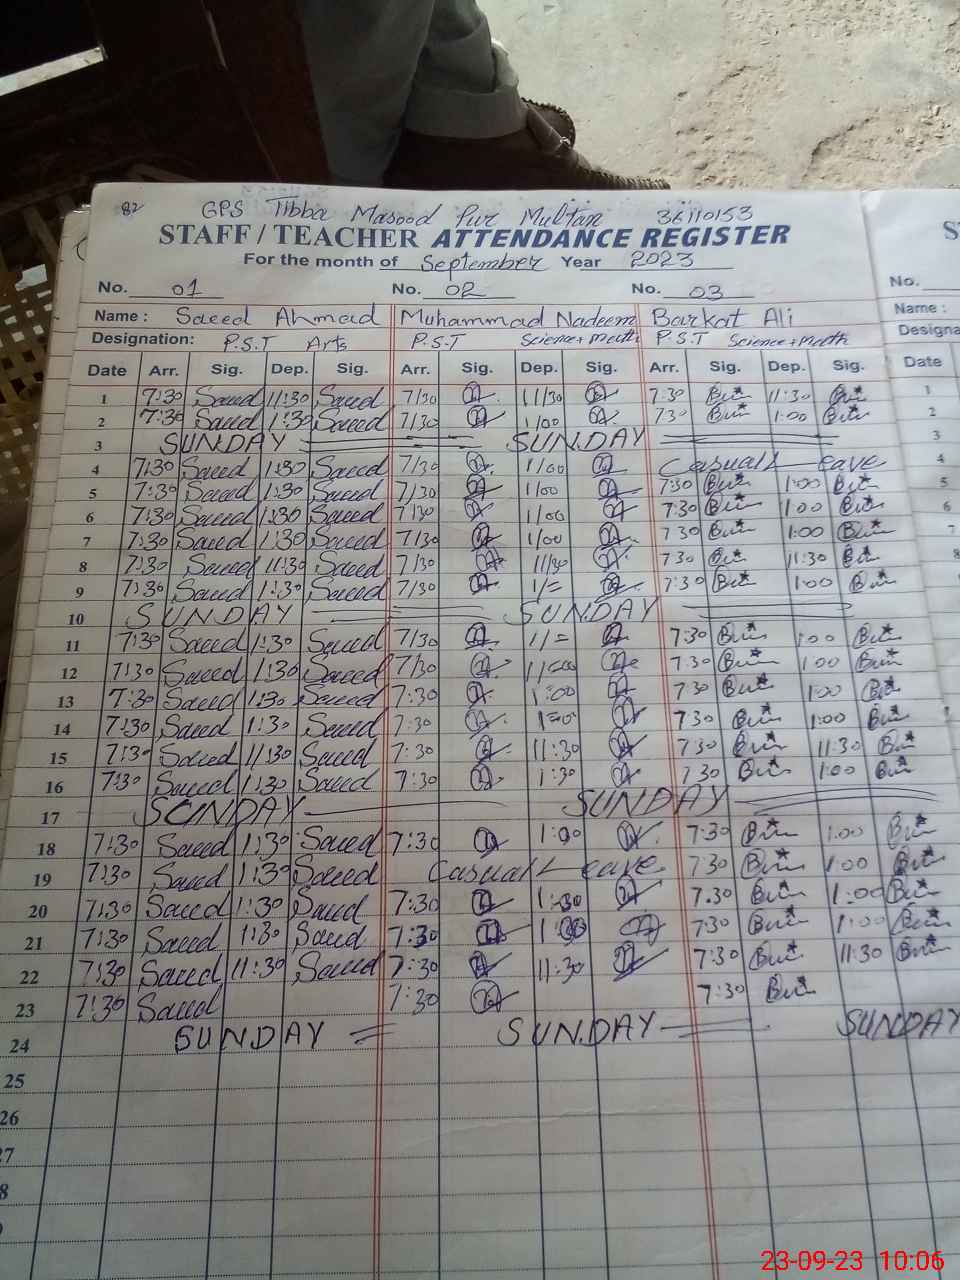 82 GPS Tibba Masood Pur Multan 36110153
STAFF / TEACHER ATTENDANCE REGISTER
For the month of September Year 2023
No. 01 No. 02 No. 03 No.
Name : Saeed Ahmad Muhammad Nadeem Barkat Ali Name :
Designation: P.S.T Arts P.S.T Science + Math P.S.T Science + Math
Date Arr. Sig. Dep. Sig. Arr. Sig. Dep. Sig. Arr. Sig. Dep. Sig. Date
1 7:30 Saeed 11:30 Saeed 7/30 11/30 7:30 11:30 1
2 7:30 Saeed 1:30 Saeed 7/30 1/00 7:30 1:00 2
3 SUNDAY SUNDAY 3
4 7:30 Saeed 1:30 Saeed 7/30 1/00 Casual Leave 4
5 7:30 Saeed 1:30 Saeed 7/30 1/00 7:30 1:00 5
6 7:30 Saeed 1:30 Saeed 7/30 1/00 7:30 1:00 6
7 7:30 Saeed 1:30 Saeed 7/30 1/00 7:30 1:00 7
8 7:30 Saeed 11:30 Saeed 7/30 11/30 7:30 11:30 8
9 7:30 Saeed 1:30 Saeed 7/30 1/= 7:30 1:00
10 SUNDAY SUNDAY
11 7:30 Saeed 1:30 Saeed 7/30 1/= 7:30 1:00
12 7:30 Saeed 1:30 Saeed 7/30 1/00 7:30 1:00
13 7:30 Saeed 1:30 Saeed 7:30 1:00 7:30 1:00
14 7:30 Saeed 1:30 Saeed 7:30 1:00 7:30 1:00
15 7:30 Saeed 11:30 Saeed 7:30 11:30 7:30 11:30
16 7:30 Saeed 1:30 Saeed 7:30 1:30 7:30 1:00
17 SUNDAY SUNDAY
18 7:30 Saeed 1:30 Saeed 7:30 1:00 7:30 1:00
19 7:30 Saeed 1:30 Saeed Casual Leave 7:30 1:00
20 7:30 Saeed 1:30 Saeed 7:30 1:30 7:30 1:00
21 7:30 Saeed 1:30 Saeed 7:30 7:30 1:00
22 7:30 Saeed 11:30 Saeed 7:30 11:30 7:30 11:30
23 7:30 Saeed 7:30 7:30
24 SUNDAY SUNDAY SUNDAY
25
26
27
8
23-09-23 10:06